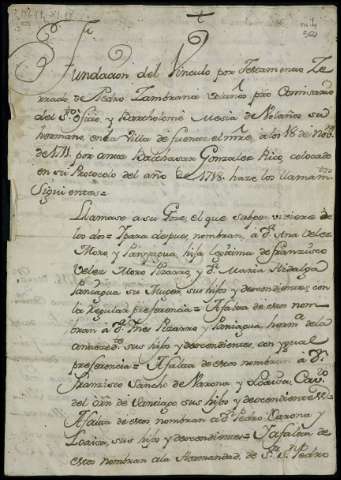 Fundacion del Vinculo por Testamento Ze
rrado de Pedro Zambrana
del S.to Ofiz.o y Bartholome Mesia de Bolaños su
hermano en la Villa de fuente el mre a los 18 de Nov.re
de 1711 por ante Balthasar Gonzalez Rico colocado
en su Protocolo del año de 1718. haze los llamam.tos
siguientes=
Llamase a su Goze, el que sobre viviere de
los dos= Para despues, nombran, a D.a Ana Velez
Moro, y Paniagua, hija legitima de franzisco
Velez Moro Pizarro, y D.a Maria Hidalgo
Paniagua su Muger, sus hijos y descendientes, con
la Regular preferencia= A falta de estos nom
bran â D.a Ines Pizarro y Paniagua, herm.a de la
anteced.te sus hijos y descendientes, con ygual
preferencia= A falta de estos nombran â D.n
Franzisco Sancho de Barona, y Loaisa, Cav.ro
del orn de Santiago sus hijos y descendientes=
A falta de estos nombran a D.n Pedro Barona, y
Loaisa, sus hijos y descendientes= Y a falta de
estos nombran a la Hermandad, de S.n Pedro